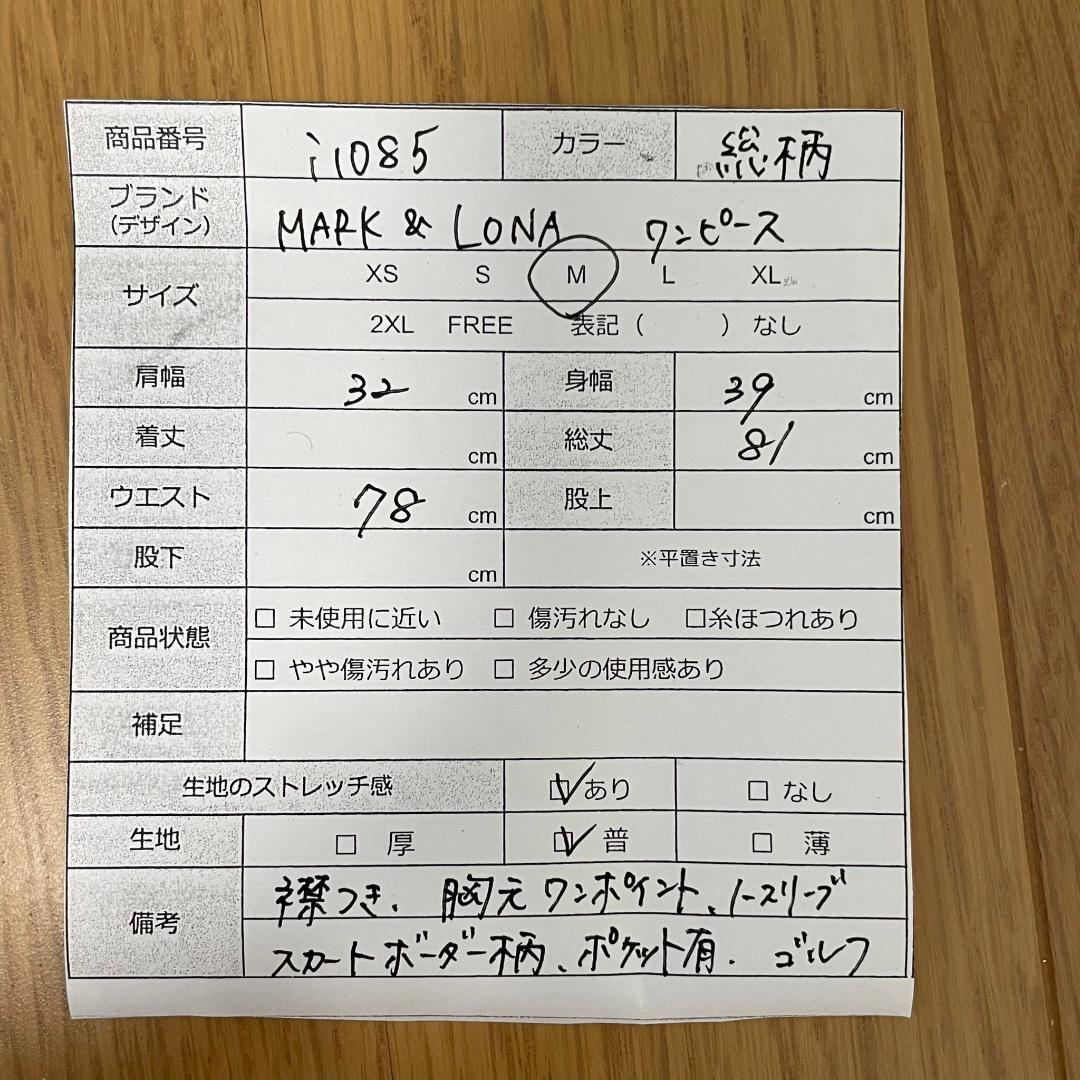 商品番号 i1085 カラー 総柄
ブランド
(デザイン) MARK & LONA ワンピース
サイズ XS S M L XL
2XL FREE 表記 ( ) なし
肩幅 32 cm 身幅 39 cm
着丈 cm 総丈 81 cm
ウエスト 78 cm 股上 cm
股下 cm ※平置き寸法
商品状態 □ 未使用に近い □ 傷汚れなし □糸ほつれあり
□ やや傷汚れあり □ 多少の使用感あり
補足
生地のストレッチ感 ☑あり □ なし
生地 □ 厚 ☑ 普 □ 薄
備考 襟つき、胸元ワンポイント、ノースリーブ
スカートボーダー柄、ポケット有. ゴルフ